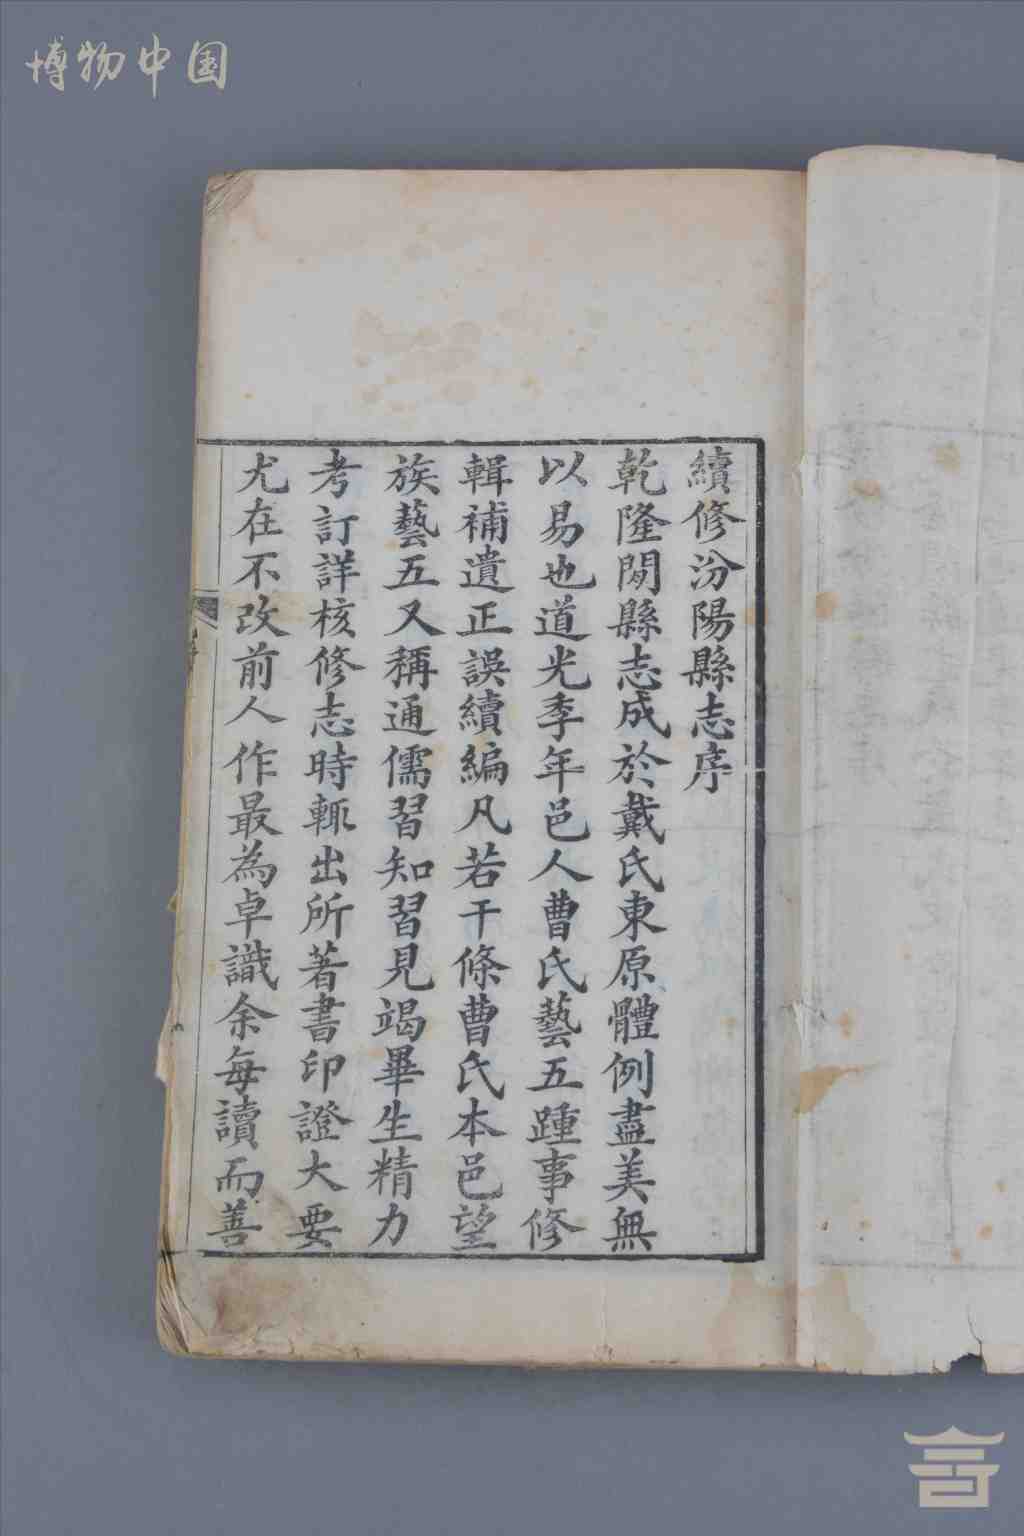 博物中国
續修汾陽縣志序
乾隆間縣志成於戴氏東原體例盡美無
以易也道光季年邑人曹氏藝五踵事修
輯補遺正誤續編凡若干條曹氏本邑望
族藝五又稱通儒習知習見竭畢生精力
考訂詳核修志時輒出所著書印證大要
尤在不改前人作最為卓識余每讀而善